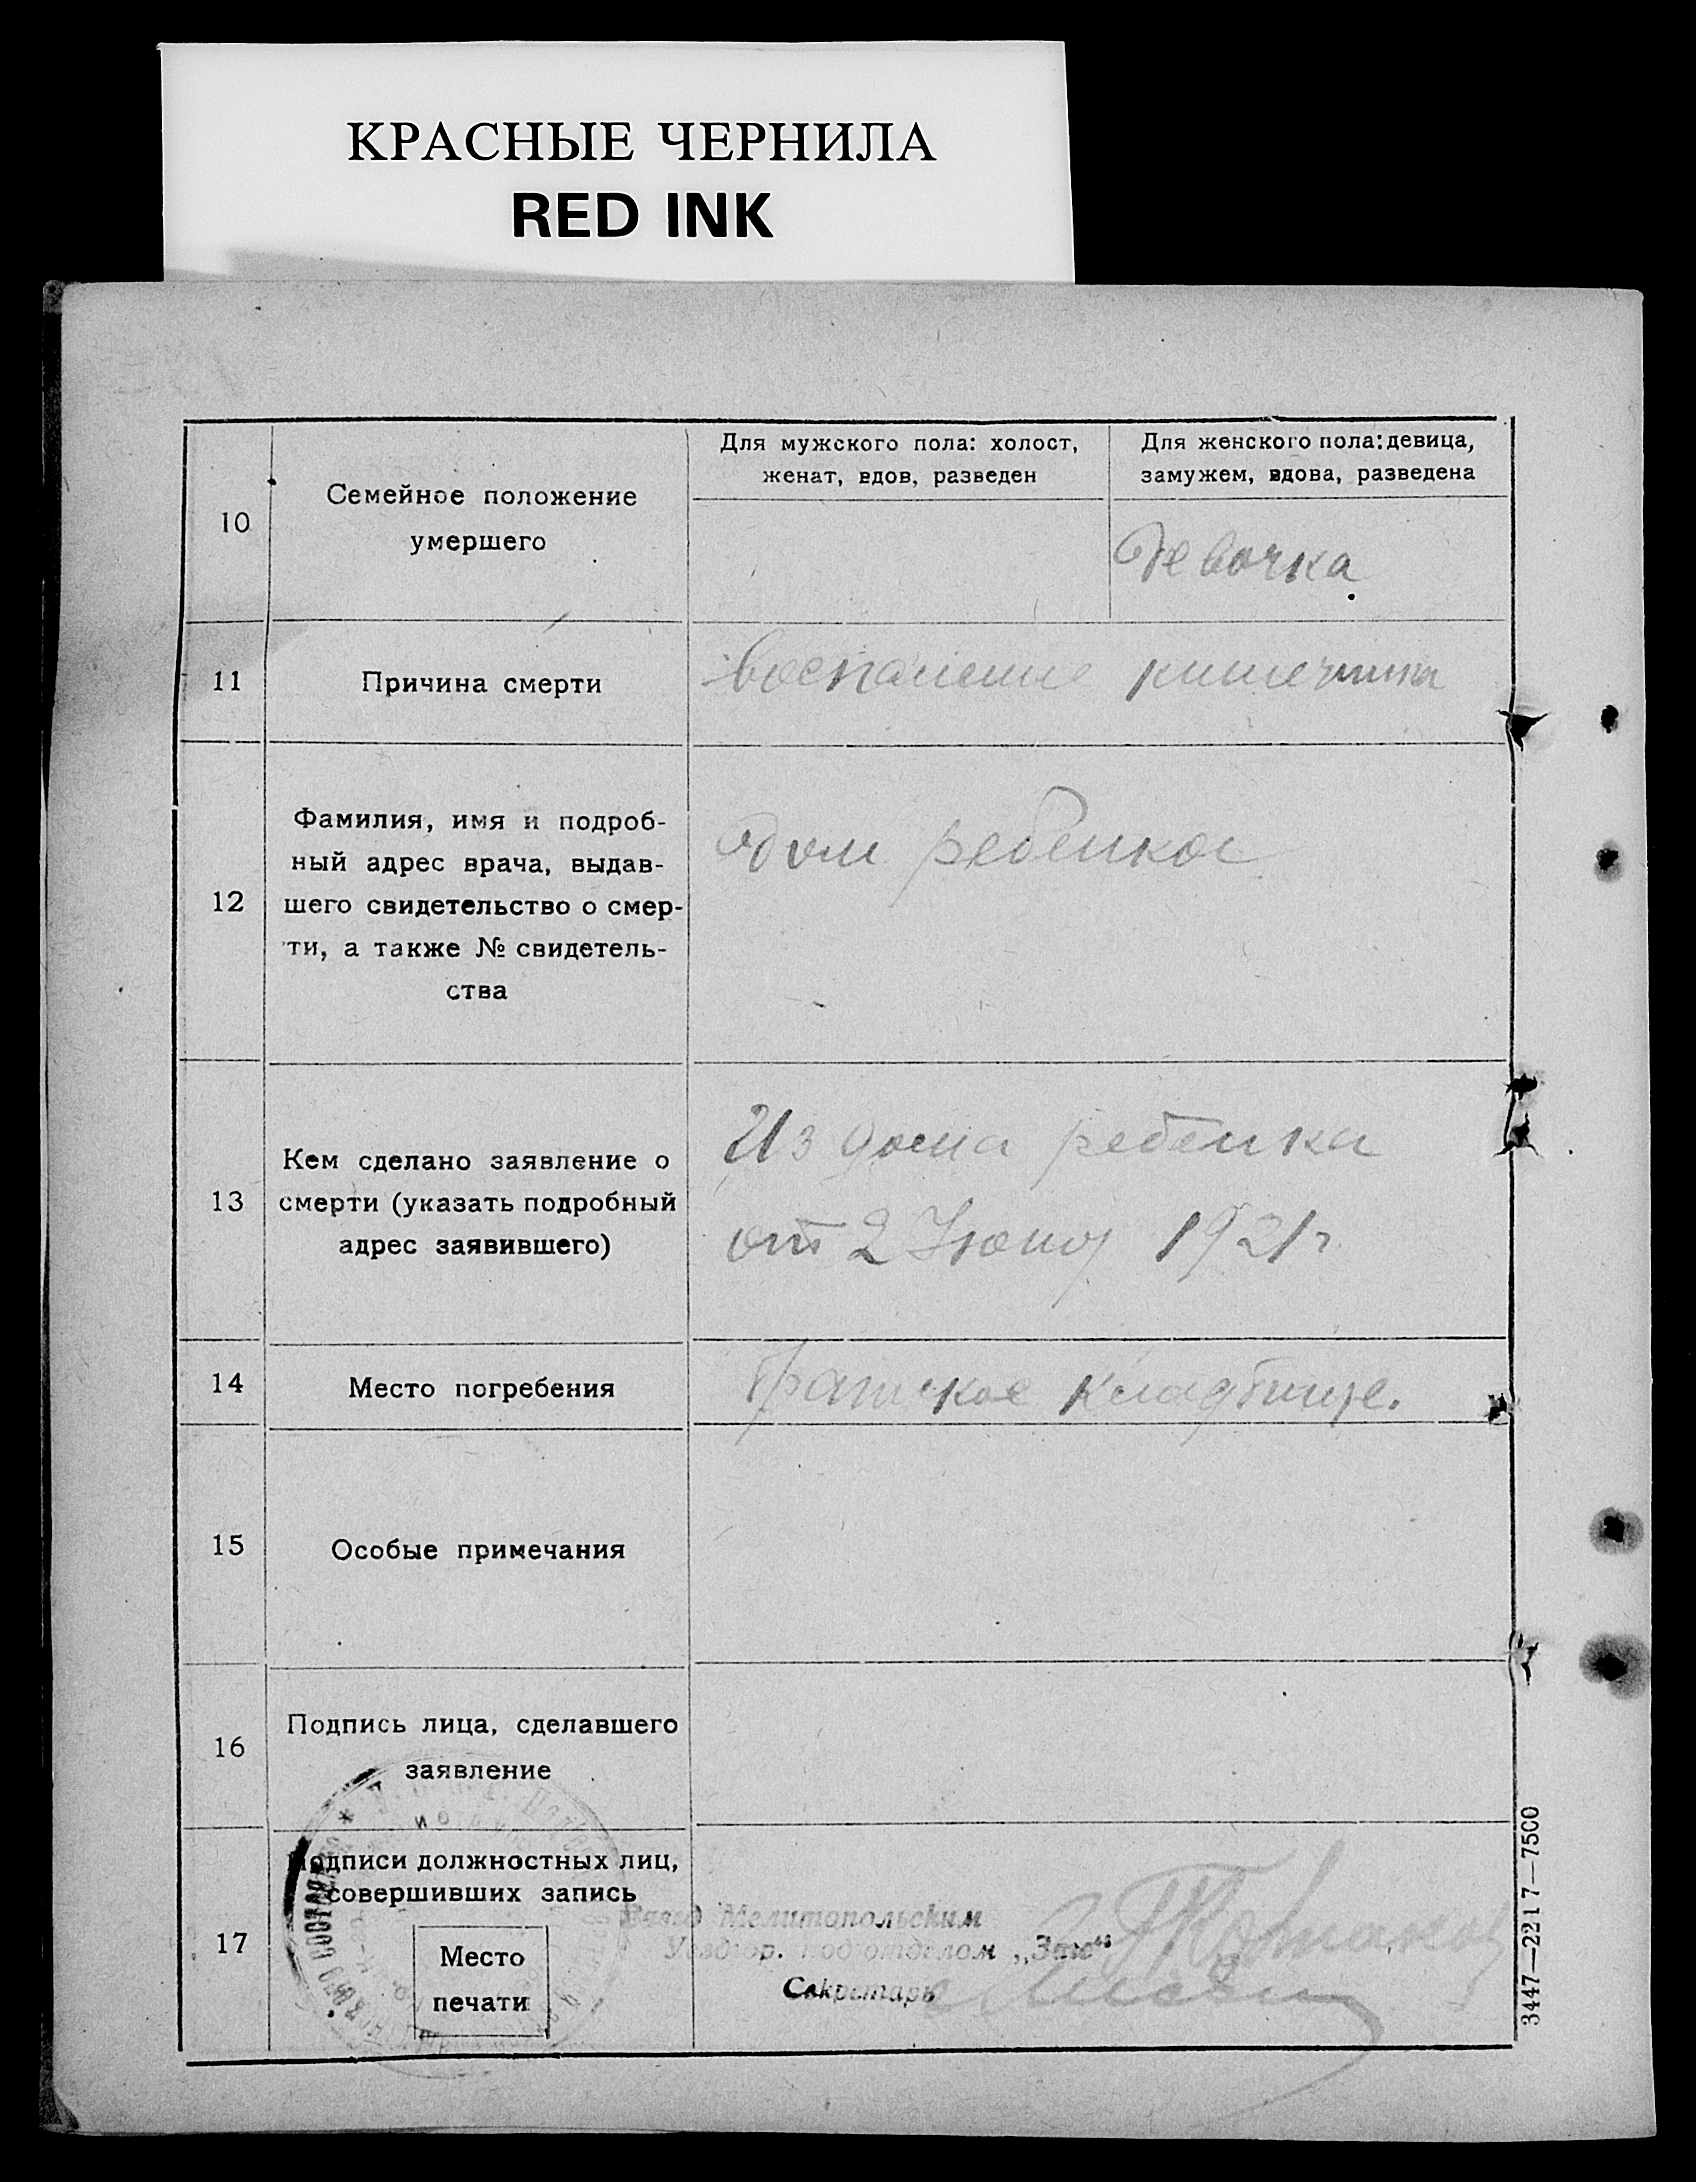 КРАСНЫЕ ЧЕРНИЛА
RED INK
10
Семейное положение
умершего
Для мужского пола: холост,
женат, вдов, разведен
Для женского пола: девица,
замужем, вдова, разведена
Девочка
11
Причина смерти
воспаление кишечника
12
Фамилия, имя и подроб-
ный адрес врача, выдав-
шего свидетельство о смер-
ти, а также № свидетель-
ства
дом ребенка
13
Кем сделано заявление о
смерти (указать подробный
адрес заявившего)
Из дома ребенка
от 2 Июня 1921 г
14
Место погребения
Братское кладбище.
15
Особые примечания
16
Подпись лица, сделавшего
заявление
17
Подписи должностных лиц,
совершивших запись
Место
печати
Мелитопольским
подотделом „Загс“
Секретарь
3447—2217—7500